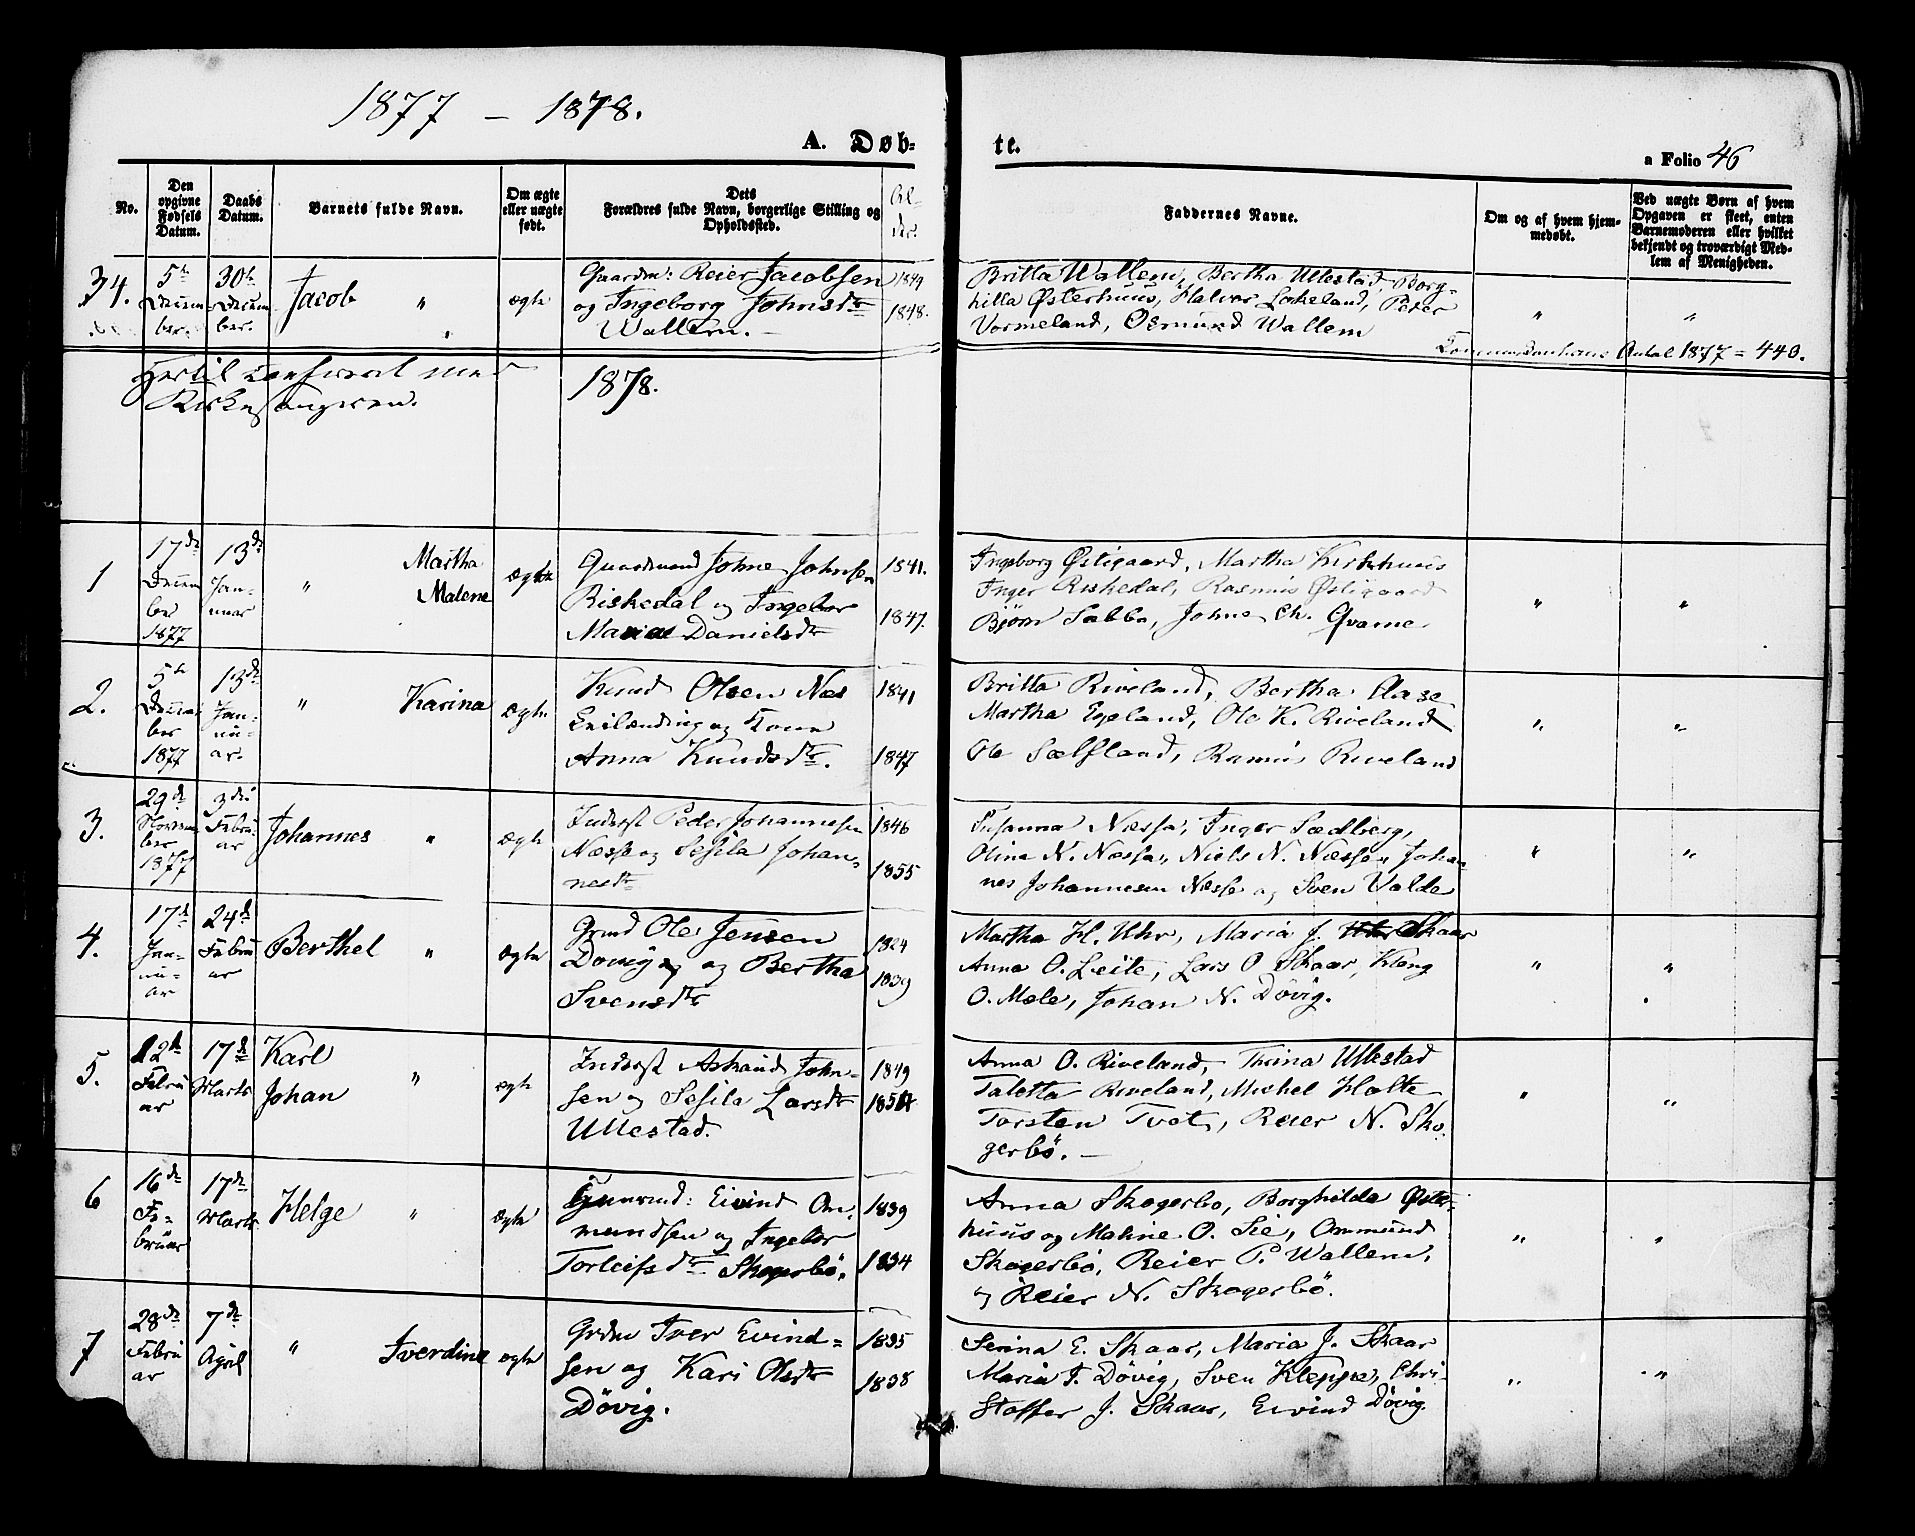 1877 – 1878.
A. Døb-
te.
a Folio 46
No.
Den opgivne Fødsels Datum.
Daabs Datum.
Barnets fulde Navn.
Om ægte eller uægte født.
Dets Forældres fulde Navn, borgerlige Stilling og Opholdssted.
Al-
der.
Faddernes Navne.
Om og af hvem hjemmedøbt.
Ved uægte Børn af hvem Opgaven er skeet, enten Barnemoderen eller hvilket bekjendt og troværdigt Medlem af Menigheden.
34.
5te Decem
ber
30te
Decem
ber.
Jacob
"
ægte
Gaardm: Reier Jacobsen
og Ingeborg Johnsdtr
Wallem. –
1849
1848.
Britta Wallem, Bertha Ullestad, Borg-
hilla Østerhuus, Halvor Lakeland, Peder
Vormeland, Osmund Wallem
"
"
Antal 1877 = 440.
Hertil confereret med
Kirkesangeren.
1878.
1
17de
Decem
ber
1877
13de
Jan-
nuar
"
Martha
Malene
ægte
Gaardmand Johne Johnsen
Riskedal og Ingebor
Maria Danielsdtr
1841.
1847.
Ingeborg Østigaard, Martha Kirkhuus
Inger Riskedal, Rasmus Østigaard
Bjørn Sabbø, Johne Ch. Qvame
"
"
2.
5te
Decem
ber
1877
13de
Jan-
nu-
ar.
"
Karina
ægte
Knud Olsen Næs
og Kone
Anna Knudsdtr.
1841
1847
Britta Riveland, Bertha Aase
Martha Egeland, Ole K. Riveland
Ole Sælsland, Rasmus Riveland
"
"
3.
29de
Novem
ber
1877
3die
Febru
ar
Johannes
"
ægte
Inderst Peder Johannesen
Næsse og Sesila Johan-
nesdtr
1846
1855
Susanna Næssa, Inger Sædberg,
Olina N. Næssa, Niels N. Næsse, Johan
nes Johannesen Næsse og Sven Valde
"
"
4.
17de
Jan-
nu-
ar
24de
Febru
ar
Berthel
"
ægte
Grmd Ole Jensen
Døvig og Bertha
Svensdtr
1824
1839
Martha H. Uhr, Maria J. Skaar
Anna O. Leite, Lars O Skaar, Kleng
O. Mæle, Johan N. Døvig.
"
"
5.
12te
Febru
ar
17de
Marts
Karl
Johan
"
ægte
Inderst Askaud John-
sen og Sesila Larsdtr
Ullestad.
1849
Anna O. Riveland, Thrina Ullestad
Taletta Riveland, Michel Holte
Torsten Tvet, Reier N. Sko-
gerbö. –
"
"
6
16de
Fe-
bruar
17de
Marts
Helge
"
ægte
Eivind Om-
mundsen og Ingebor
Torleifsdtr Skogerbö.
1839
1834
Anna Skogerbo, Borghilda Øster-
huus og Maline O. Lie, Ommund
Skogerbö, Reier P. Wallem,
og Reier N. Skogerbö.
"
"
7
28de
Febru
ar
7de
April
"
Iverdine
ægte
Grdm Iver Eivind-
sen og Kari Olsdtr
Dövig.
1835
1838
Serina E. Skaar, Maria J. Skaar
Maria T. Dövig, Sven Kleppe, Chri-
stoffer J. Skaar, Eivind Dövig.
"
"